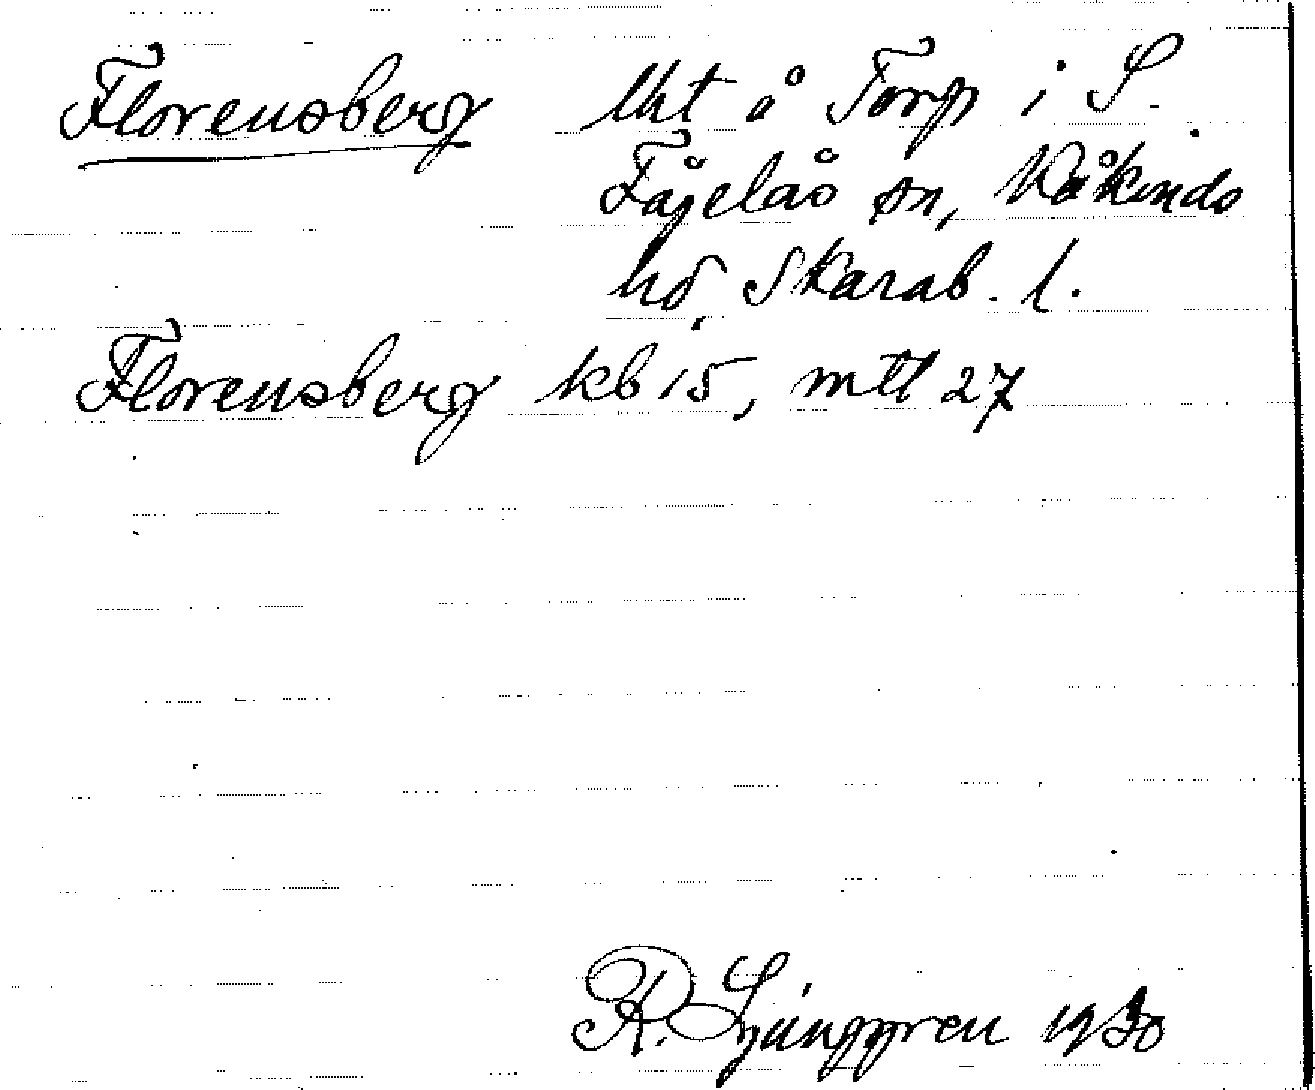 Florensberg lht å Torp i S.
Fågelås sn, Kåkinds
hd, Skarab. l.
Florensberg kb 15, mtl 27
R. Ljunggren 1930